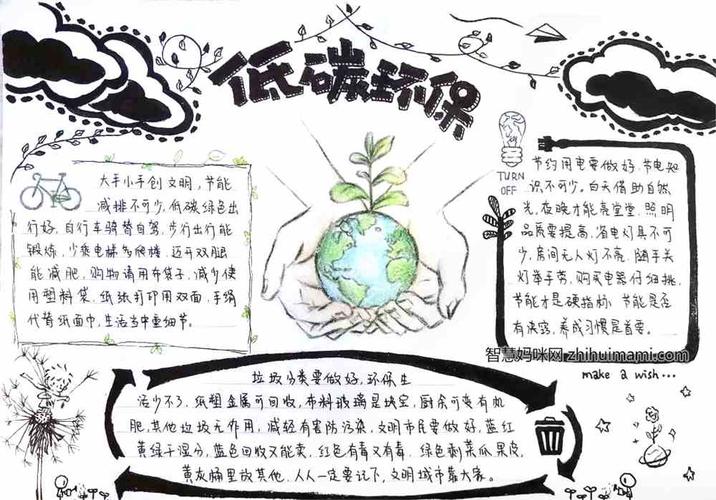 低碳环保
大手小手创文明，节能
减排不可少，低碳绿色出
行好，自行车骑替自驾，步行出行能
锻炼，少乘电梯多爬楼，迈开双腿
能减肥，购物请用布袋子，减少使
用塑料袋，纸张打印用双面，手绢
代替纸面巾，生活当中重细节。
TURN
OFF
节约用电要做好，节电知
识不可少。白天借助自然
光，夜晚才能亮堂堂，照明
品质要提高，省电灯具不可
少，房间无人灯不亮，随手关
灯举手劳，购买电器仔细挑，
节能才是硬指标，节能是否
有决窍，养成习惯是首要。
智慧妈咪网 zhihuimami.com
make a wish...
垃圾分类要做好，环保生
活少不了，纸塑金属可回收，布料玻璃是块宝，厨余可变有机
肥，其他垃圾无作用，减轻有害防污染，文明市民要做好，蓝红
黄绿干湿分，蓝色回收又能卖，红色有毒又有毒，绿色剩菜瓜果皮，
黄灰桶里放其他，人人一定要记下，文明城市靠大家。